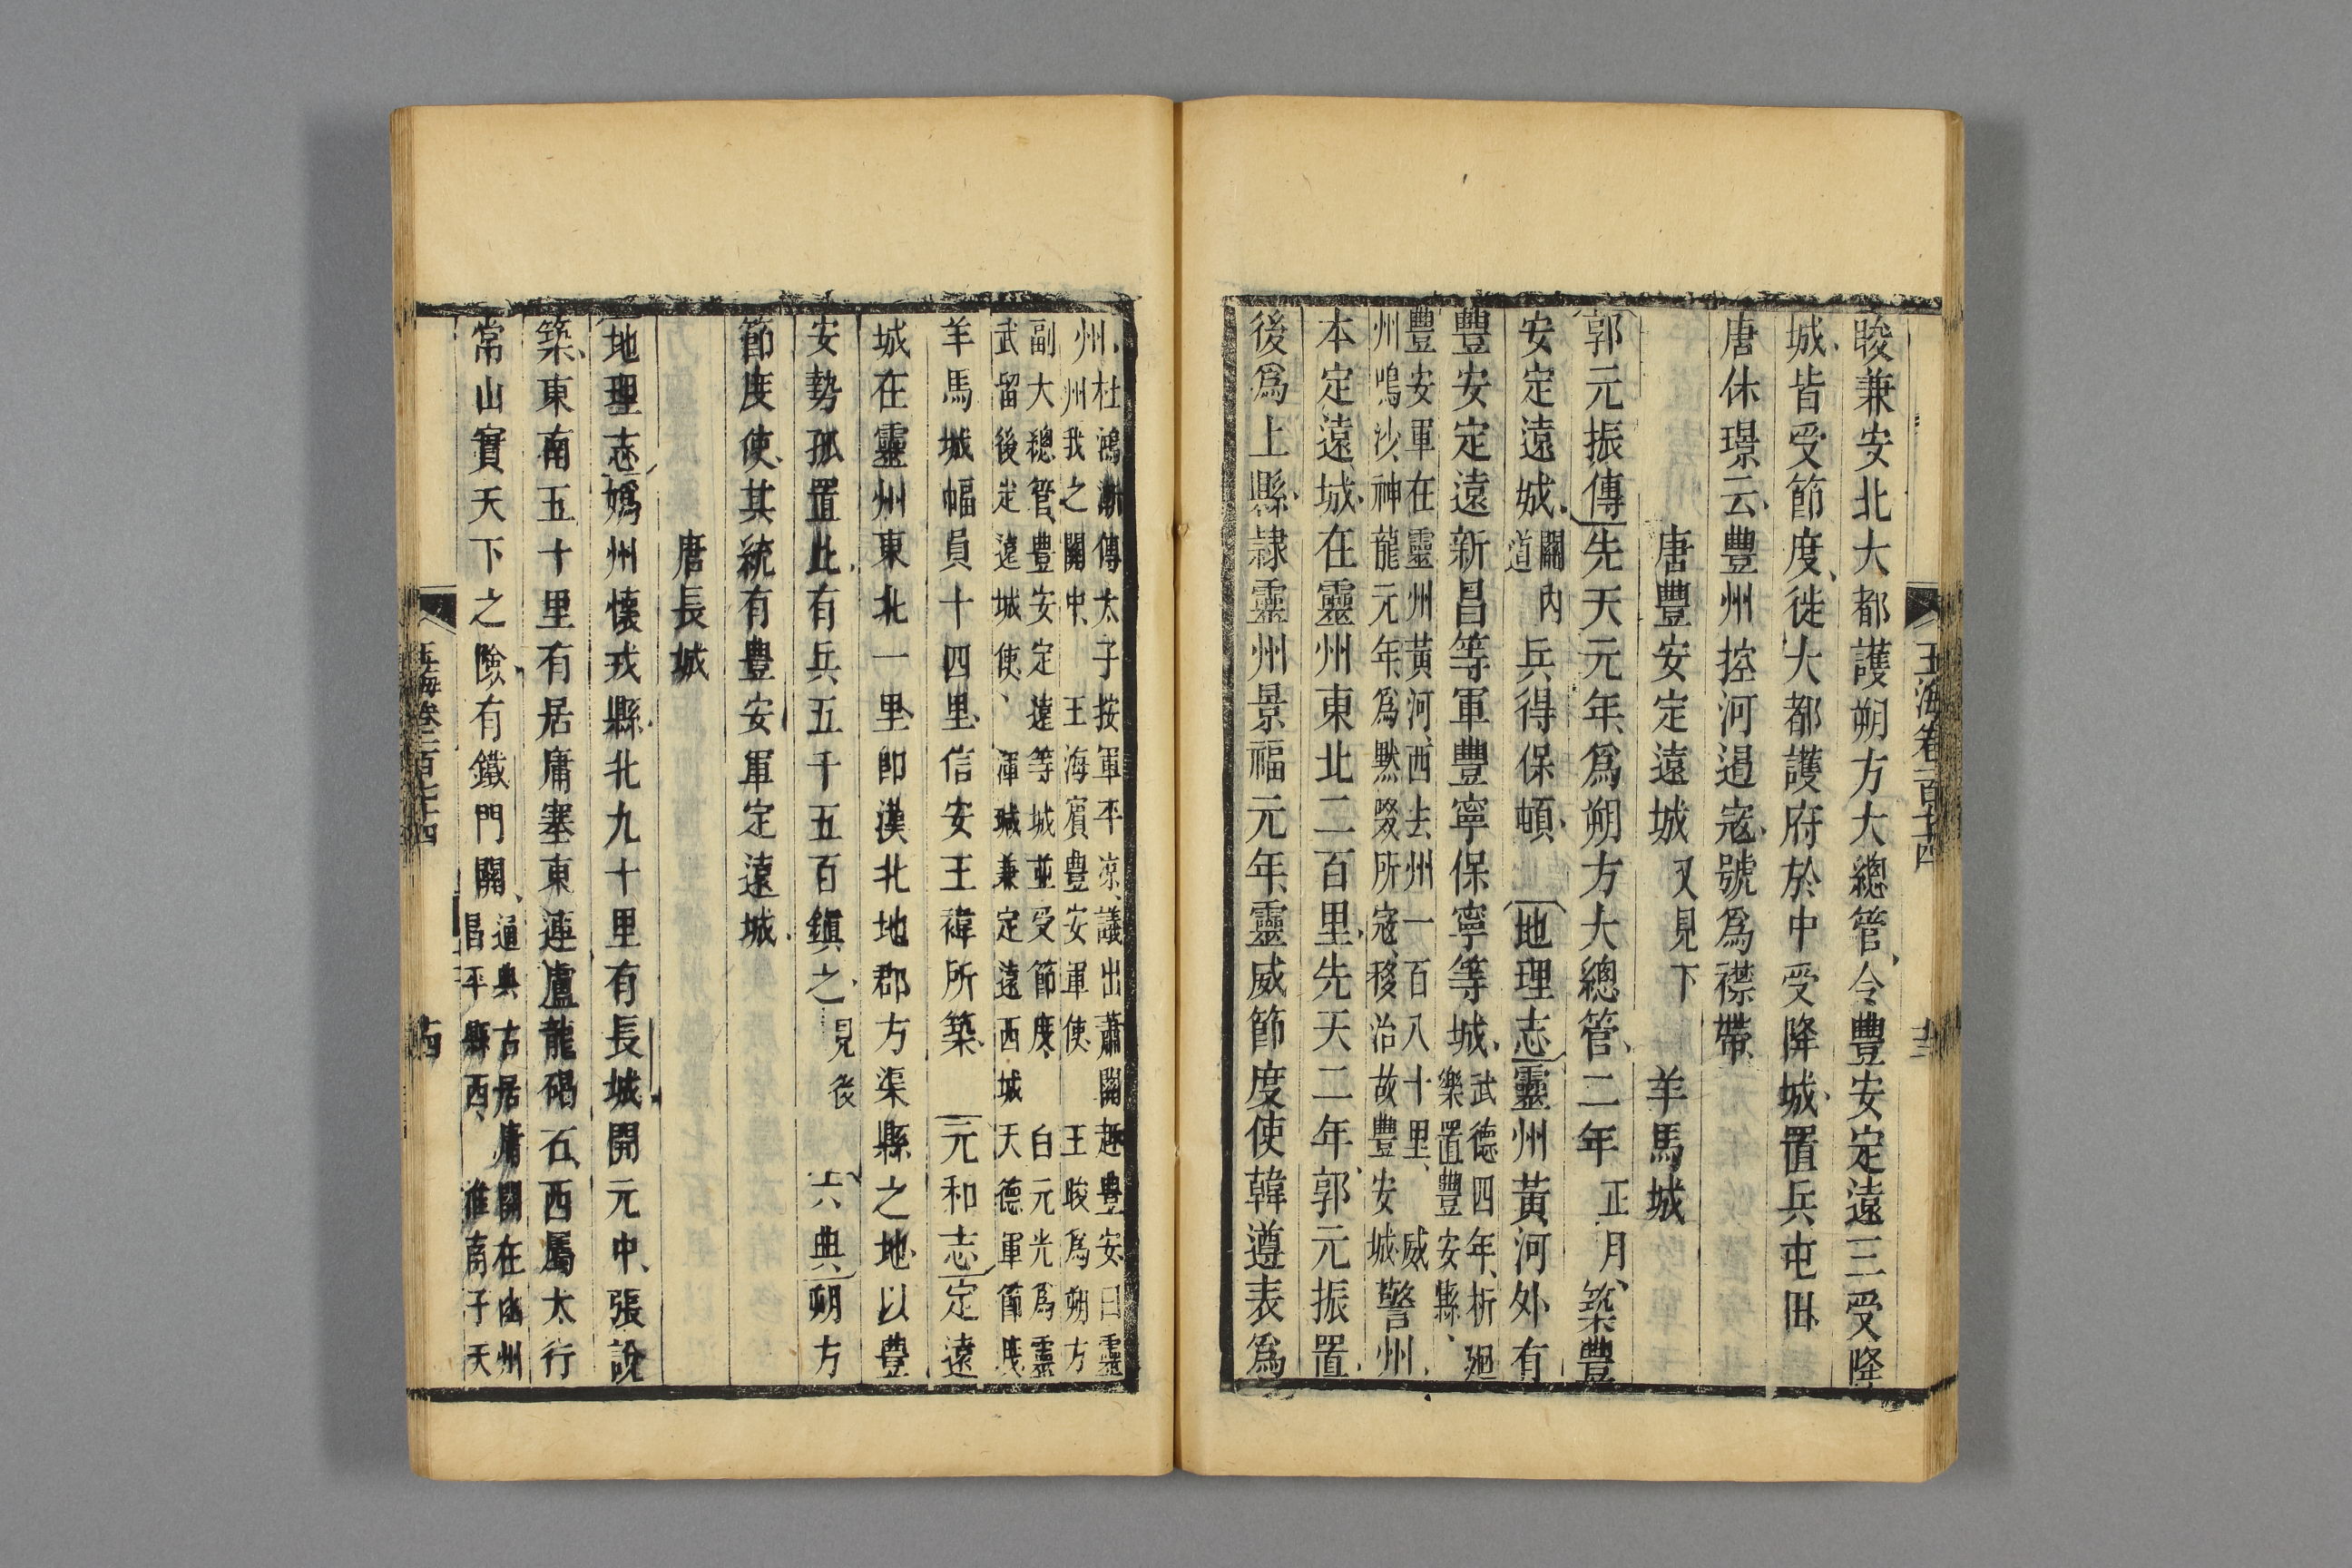 晙兼安北大都護朔方大總管令豐安定遠三受降
城皆受節度徙大都護府於中受降城置兵屯田
唐休璟云豐州控河遏寇號爲襟帶
唐豐安定遠城 又見下 羊馬城
郭元振傳先天元年爲朔方大總管二年正月築豐
安定遠城關內道兵得保頓 地理志靈州黃河外有
豐安定遠新昌等軍豐寧保寧等城武德四年析廻樂置豐安縣
豐安軍在靈州黃河西去州一百八十里 威州鳴沙神龍元年爲默啜所寇移治故豐安城警州
本定遠城在靈州東北二百里先天二年郭元振置
後爲上縣隷靈州景福元年靈威節度使韓遵表爲
玉海卷一百七十四
州杜鴻漸傳太子按軍平凉議出蕭關趣豊安曰靈州我之關中 王海賓豊安軍使 王晙爲朔方
副大總管豊安定遠等城並受節度 白元光爲靈武留後定遠城使 渾瑊兼定遠西城天德軍節度
羊馬城幅員十四里信安王褘所築 元和志定遠
城在靈州東北一里卽漢北地郡方渠縣之地以豊
安勢孤置此有兵五千五百鎭之見後 六典朔方
節度使其統有豊安軍定遠城
唐長城
地理志嬀州懷戎縣北九十里有長城開元中張說
築東南五十里有居庸塞東連盧龍碣石西屬太行
常山實天下之險有鐵門關通典古居庸關在幽州昌平縣西 淮南子天
玉海卷一百七十四